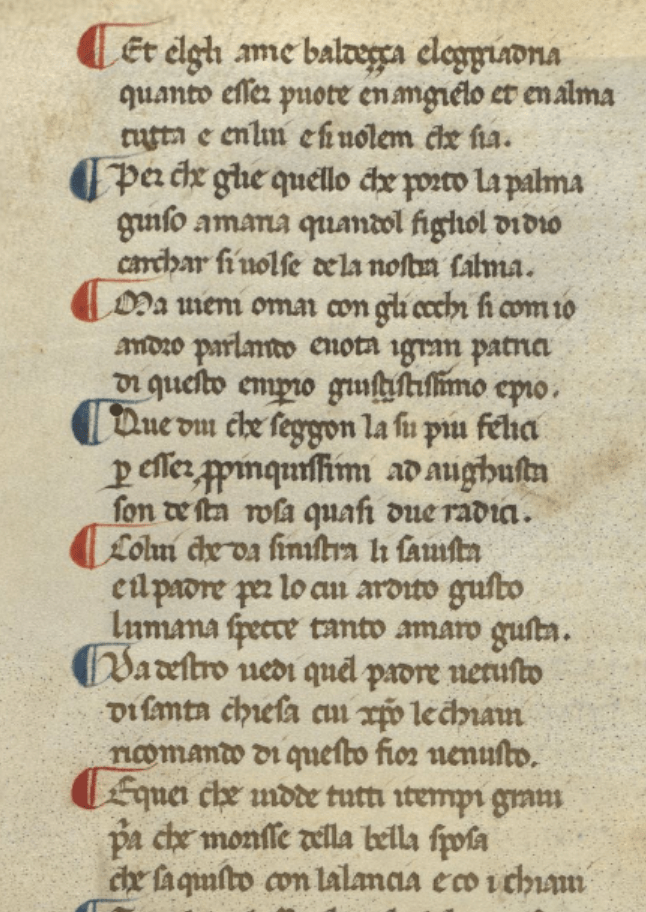 Et elgli ame baldeçça eleggiadria
quanto esser puote enangielo et enalma
tutta e enlui e si uolem che sia.
Per che glie quello che porto la palma
giuso amaria quandol figliol didio
carchar si uolse dela nostra salma.
Ma uieni omai con gli occhi si com io
andro parlando enota igran patrici
di questo emp̲io giustistissimo epio.
Que dui che seggon la su piu felici
p̲ esser p̲pinquissimi ad aughusta
son desta rosa quasi due radici.
Colui che da sinistra li sauista
e il padre per lo cui ardito gusto
lumana specce tanto amaro gusta.
Da destro uedi quel padre uetusto
di santa chiesa cui xp̄o le chiaui
ricomando di questo fior uenusto.
Equei che uidde tutti itempi graui
p̄a che morisse della bella sposa
che saquisto con lalancia e co i chiaui